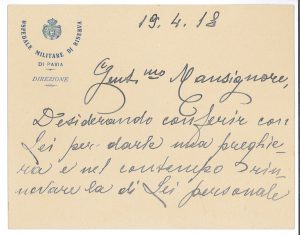 OSPEDALE MILITARE DI RISERVA
DI PAVIA
DIREZIONE
19.4.18
Gent.mo Monsignore,
Desiderando conferir con
Lei per darle una preghie
ra e nel contempo rin
novare la di Lei personale